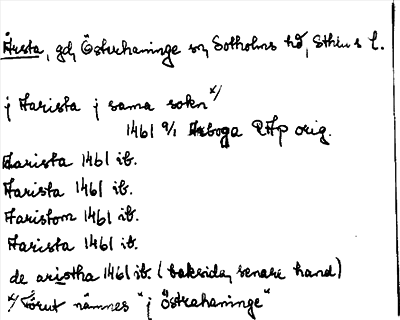 Årsta, gd, Österhaninge sn, Sotholms hd, Sthlms l.
j Aarista j sama sokn x)
1461 9/1 Arboga RAp orig.
Aarista 1461 ib.
Aarista 1461 ib.
Aaristom 1461 ib.
Aarista 1461 ib.
de aristha 1461 ib. (baksida, senare hand)
x) Förut nämnes "j Östrahaninge"